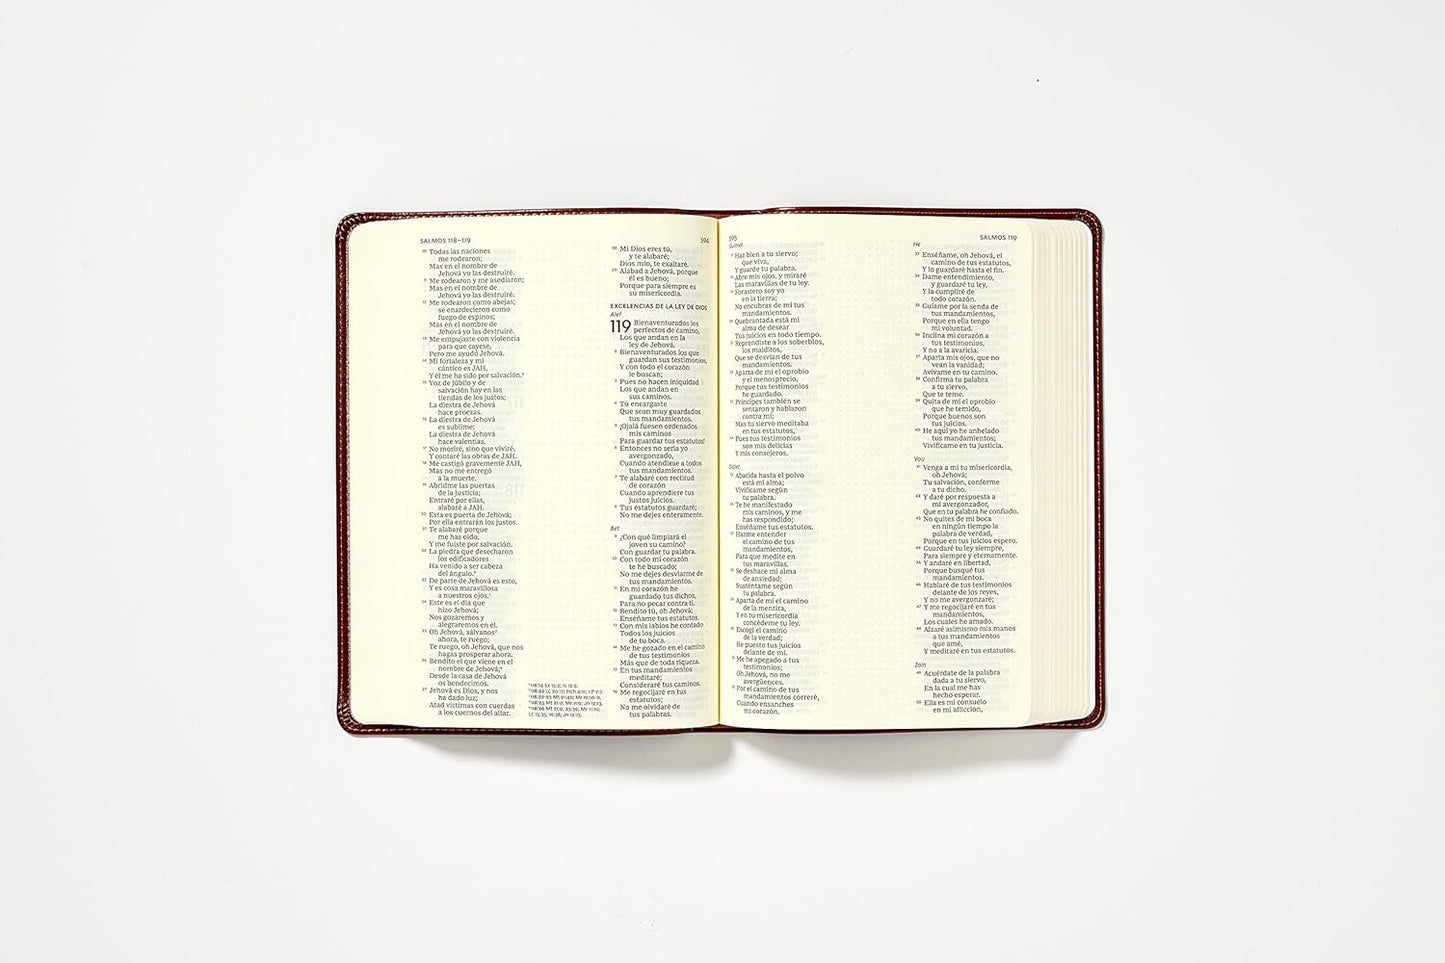 SALMOS 118–119
10 Todas las naciones
me rodearon;
Mas en el nombre de
Jehová yo las destruiré.
11 Me rodearon y me asediaron;
Mas en el nombre de
Jehová yo las destruiré.
12 Me rodearon como abejas;
se enardecieron como
fuego de espinos;
Mas en el nombre de
Jehová yo las destruiré.
13 Me empujaste con violencia
para que cayese,
Pero me ayudó Jehová.
14 Mi fortaleza y mi
cántico es JAH,
Y él me ha sido por salvación.
15 Voz de júbilo y de
salvación hay en las
tiendas de los justos;
La diestra de Jehová
hace proezas.
16 La diestra de Jehová
es sublime;
La diestra de Jehová
hace valentías.
17 No moriré, sino que viviré,
Y contaré las obras de JAH.
18 Me castigó gravemente JAH,
Mas no me entregó
a la muerte.
19 Abridme las puertas
de la justicia;
Entraré por ellas,
alabaré a JAH.
20 Esta es puerta de Jehová;
Por ella entrarán los justos.
21 Te alabaré porque
me has oído,
Y me fuiste por salvación.
22 La piedra que desecharon
los edificadores
Ha venido a ser cabeza
del ángulo.
23 De parte de Jehová es esto,
Y es cosa maravillosa
a nuestros ojos.
24 Este es el día que
hizo Jehová;
Nos gozaremos y
alegraremos en él.
25 Oh Jehová, sálvanos
ahora, te ruego;
Te ruego, oh Jehová, que nos
hagas prosperar ahora.
26 Bendito el que viene en el
nombre de Jehová;
Desde la casa de Jehová
os bendecimos.
27 Jehová es Dios, y nos
ha dado luz;
Atad víctimas con cuerdas
a los cuernos del altar.
594
28 Mi Dios eres tú,
y te alabaré;
Dios mío, te exaltaré.
29 Alabad a Jehová, porque
él es bueno;
Porque para siempre es
su misericordia.
EXCELENCIAS DE LA LEY DE DIOS
Alef
119 Bienaventurados los
perfectos de camino,
Los que andan en la
ley de Jehová.
2 Bienaventurados los que
guardan sus testimonios,
Y con todo el corazón
le buscan;
3 Pues no hacen iniquidad
Los que andan en
sus caminos.
4 Tú encargaste
Que sean muy guardados
tus mandamientos.
5 ¡Ojalá fuesen ordenados
mis caminos
Para guardar tus estatutos!
6 Entonces no sería yo
avergonzado,
Cuando atendiese a todos
tus mandamientos.
7 Te alabaré con rectitud
de corazón
Cuando aprendiere tus
justos juicios.
8 Tus estatutos guardaré;
No me dejes enteramente.
Bet
9 ¿Con qué limpiará el
joven su camino?
Con guardar tu palabra.
10 Con todo mi corazón
te he buscado;
No me dejes desviarme de
tus mandamientos.
11 En mi corazón he
guardado tus dichos,
Para no pecar contra ti.
12 Bendito tú, oh Jehová;
Enséñame tus estatutos.
13 Con mis labios he contado
Todos los juicios
de tu boca.
14 Me he gozado en el camino
de tus testimonios
Más que de toda riqueza.
15 En tus mandamientos
meditaré;
Consideraré tus caminos.
16 Me regocijaré en tus
estatutos;
No me olvidaré de
tus palabras.
595
Guímel
17 Haz bien a tu siervo;
que viva,
Y guarde tu palabra.
18 Abre mis ojos, y miraré
Las maravillas de tu ley.
19 Forastero soy yo
en la tierra;
No encubras de mí tus
mandamientos.
20 Quebrantada está mi
alma de desear
Tus juicios en todo tiempo.
21 Reprendiste a los soberbios,
los malditos,
Que se desvían de tus
mandamientos.
22 Aparta de mí el oprobio
y el menosprecio,
Porque tus testimonios
he guardado.
23 Príncipes también se
sentaron y hablaron
contra mí;
Mas tu siervo meditaba
en tus estatutos,
24 Pues tus testimonios
son mis delicias
Y mis consejeros.
Dálet
25 Abatida hasta el polvo
está mi alma;
Vivifícame según
tu palabra.
26 Te he manifestado
mis caminos, y me
has respondido;
Enséñame tus estatutos.
27 Hazme entender
el camino de tus
mandamientos,
Para que medite en
tus maravillas.
28 Se deshace mi alma
de ansiedad;
Susténtame según
tu palabra.
29 Aparta de mí el camino
de la mentira,
Y en tu misericordia
concédeme tu ley.
30 Escogí el camino
de la verdad;
He puesto tus juicios
delante de mí.
31 Me he apegado a tus
testimonios;
Oh Jehová, no me
avergüences.
32 Por el camino de tus
mandamientos correré,
Cuando ensanches
mi corazón.
SALMOS 119
He
33 Enséñame, oh Jehová, el
camino de tus estatutos,
Y lo guardaré hasta el fin.
34 Dame entendimiento,
y guardaré tu ley,
Y la cumpliré de
todo corazón.
35 Guíame por la senda de
tus mandamientos,
Porque en ella tengo
mi voluntad.
36 Inclina mi corazón a
tus testimonios,
Y no a la avaricia.
37 Aparta mis ojos, que no
vean la vanidad;
Avívame en tu camino.
38 Confirma tu palabra
a tu siervo,
Que te teme.
39 Quita de mí el oprobio
que he temido,
Porque buenos son
tus juicios.
40 He aquí yo he anhelado
tus mandamientos;
Vivifícame en tu justicia.
Vau
41 Venga a mí tu misericordia,
oh Jehová;
Tu salvación, conforme
a tu dicho.
42 Y daré por respuesta a
mi avergonzador,
Que en tu palabra he confiado.
43 No quites de mi boca
en ningún tiempo la
palabra de verdad,
Porque en tus juicios espero.
44 Guardaré tu ley siempre,
Para siempre y eternamente.
45 Y andaré en libertad,
Porque busqué tus
mandamientos.
46 Hablaré de tus testimonios
delante de los reyes,
Y no me avergonzaré;
47 Y me regocijaré en tus
mandamientos,
Los cuales he amado.
48 Alzaré asimismo mis manos
a tus mandamientos
que amé,
Y meditaré en tus estatutos.
Zain
49 Acuérdate de la palabra
dada a tu siervo,
En la cual me has
hecho esperar.
50 Ella es mi consuelo
en mi aflicción,